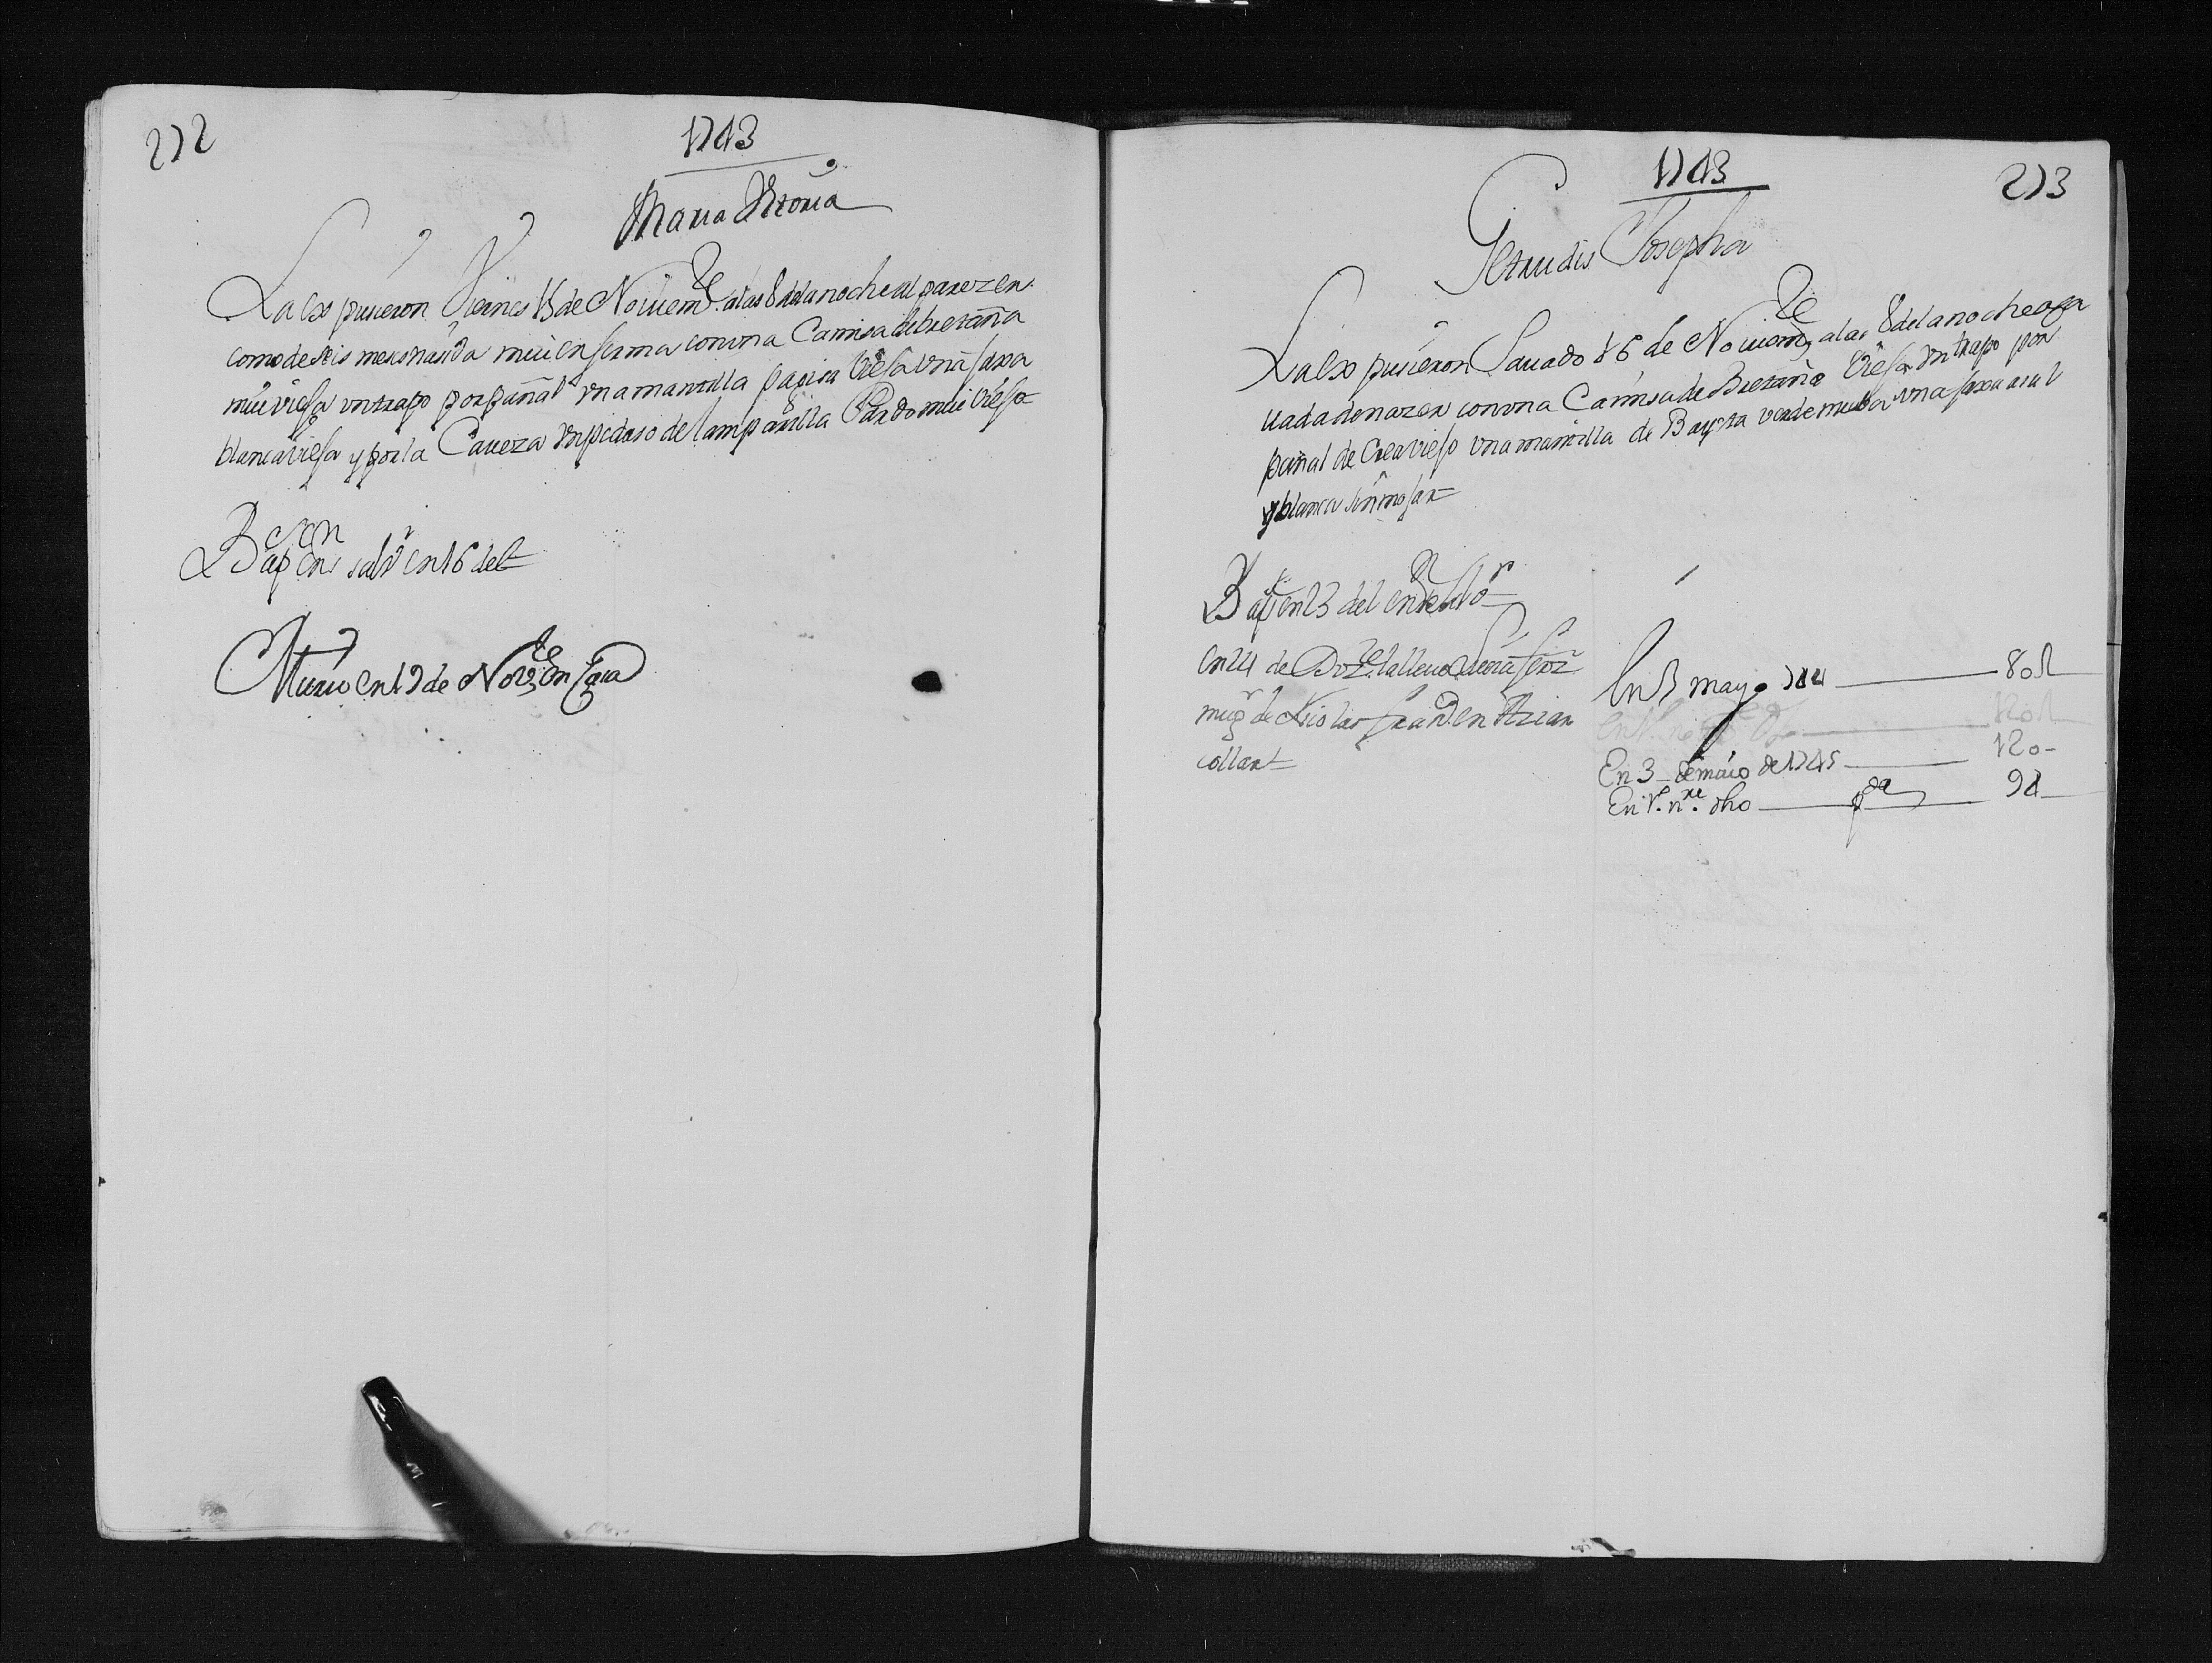 272
1743
Maria Vitoria
La Expusieron Viernes 15 de Noviemre a las 8 de la noche al parezer
como de seis meses nasida mui enferma con vna Camisa de bretaña
mui viesa vn trapo por pañal vna mantilla pagisa viesa vna faxa
blanca viesa y por la Caveza vn pedaso de lamparilla Pardo mui vieso
Bap en salr en 16 del
Murio en 19 de Novre en casa
1743
273
Getrudis Josepha
La Expusieron Savado 16 de Noviemre a las 8 de la noche
vada de nazer con vna Camisa de Bretaña viesa vn trapo por
pañal de Crea vieso vna mantilla de Bayeta verde nueba vna faxa asul
y blanca sin mosar
Bap en 23 del en el salvor
en 24 de Dizre la llevo
mugr de Nicolas en Aznar
collar
En 5 mayo 744 80 r
120 r
En 3 de maio de 1745 120
En 1º nre dho pda 94